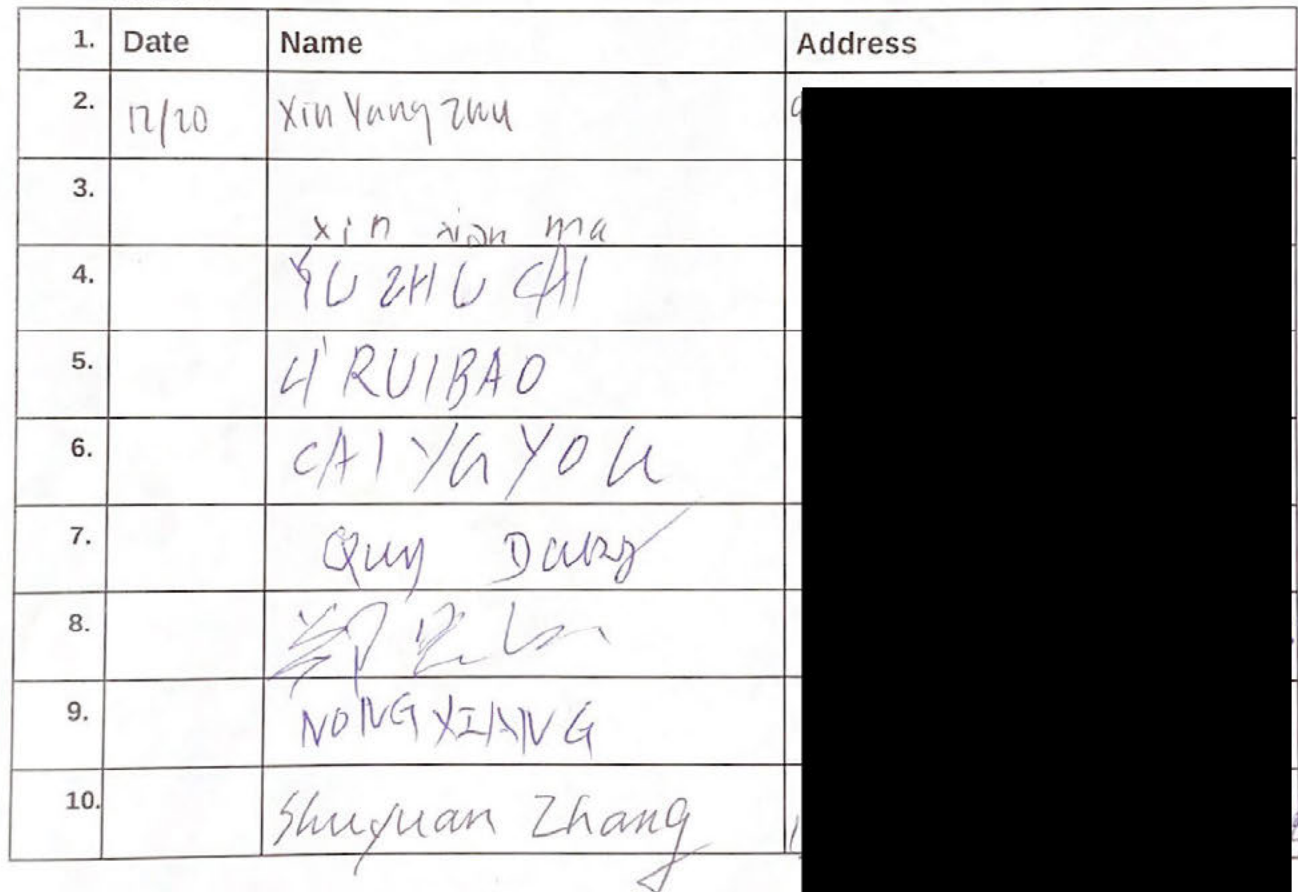 1. Date Name Address
2. 12/20 Xin Yang Zhu
3. xin xian ma
4. YU ZHU CAI
5. LI RUIBAO
6. CAI YU YOU
7.
8. 郑
9. NONG XIANG
10. Shuyuan Zhang